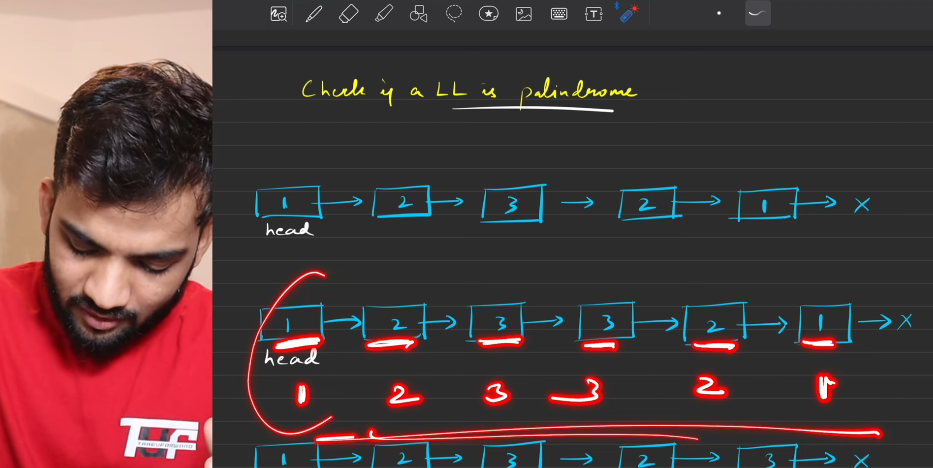 Check if a LL is palindrome
1 → 2 → 3 → 2 → 1 → X
head
1 → 2 → 3 → 3 → 2 → 1 → X
head
1 2 3 3 2 1
1 → 2 → 3 → 2 → 3 → X
TUF
TAKEUFORWARD